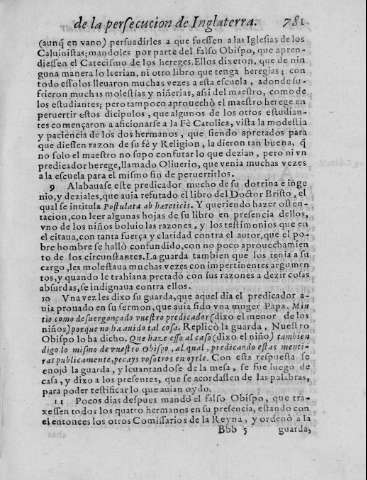 de la persecucion de Inglaterra. 781
(aunq̃ en vano) persuadirles a que fuessen a las Iglesias de los
Caluinistas; mandoles por parte del falso Obispo, que apren-
diessen el Catecismo de los hereges. Ellos dixeron, que de nin
guna manera lo leerian, ni otro libro que tenga heregias; con
todo esso los lleuaron muchas vezes a esta escuela, adonde su-
frieron muchas molestias y niñerias, assi del maestro, como de
los estudiantes; pero tampoco aprouechò el maestro herege en
peruertir estos dicipulos, que algunos de los otros estudian-
tes començaron a aficionarse a la Fè Catolica, vista la modestia
y paciencia de los dos hermanos, que siendo apretados para
que diessen razon de su fè y Religion, la dieron tan buena, q̃
no solo el maestro no supo confutar lo que dezian, pero ni vn
predicador herege, llamado Oliuerio, que venia muchas vezes
a la escuela para el mismo fin de peruertirlos.
9 Alabauase este predicador mucho de su dotrina e inge
nio, y dezia les, que auia refutado el libro del Doctor Bristo, el
qual se intitula Postulata ab hæreticis. Y queriendo hazer osten-
tacion, con leer algunas hojas de su libro en presencia dellos,
vno de los niños boluio las razones, y los testimonios que en
el citaua, con tanta fuerça y claridad contra el autor, que el po-
bre hombre se hallò confundido, con no poco aprouechamien
to de los circunstantes. La guarda tambien que los tenia a su
cargo, les molestaua muchas vezes con impertinentes argumen
tos, y quando le trahian apretado con sus razones a dezir cosas
absurdas, se indignaua contra ellos.
10 Vna vez les dixo su guarda, que aquel dia el predicador a-
uia prouado en su sermon, que auia sido vna muger Papa. Min
tio como desuergonçado vuestro predicador (dixo el menor de los
niños) porque no ha auido tal cosa. Replicò la guarda, Nuestro
Obispo lo ha dicho. Que haze esso al caso (dixo el niño) tambien
digo lo mismo de vuestro Obispo, al qual, predicando estas menti-
ras publicamente, pecays vosotros en oyrle. Con esta respuesta se
enojò la guarda, y leuantandose de la mesa, se fue luego de
casa, y dixo a los presentes, que se acordassen de las palabras,
para poder testificar lo que auian oydo.
11 Pocos dias despues mandò el falso Obispo, que tra-
xessen todos los quatro hermanos en su presencia, estando con
el entonces los otros Comissarios de la Reyna, y ordenò a la
Bbb 5 guarda,